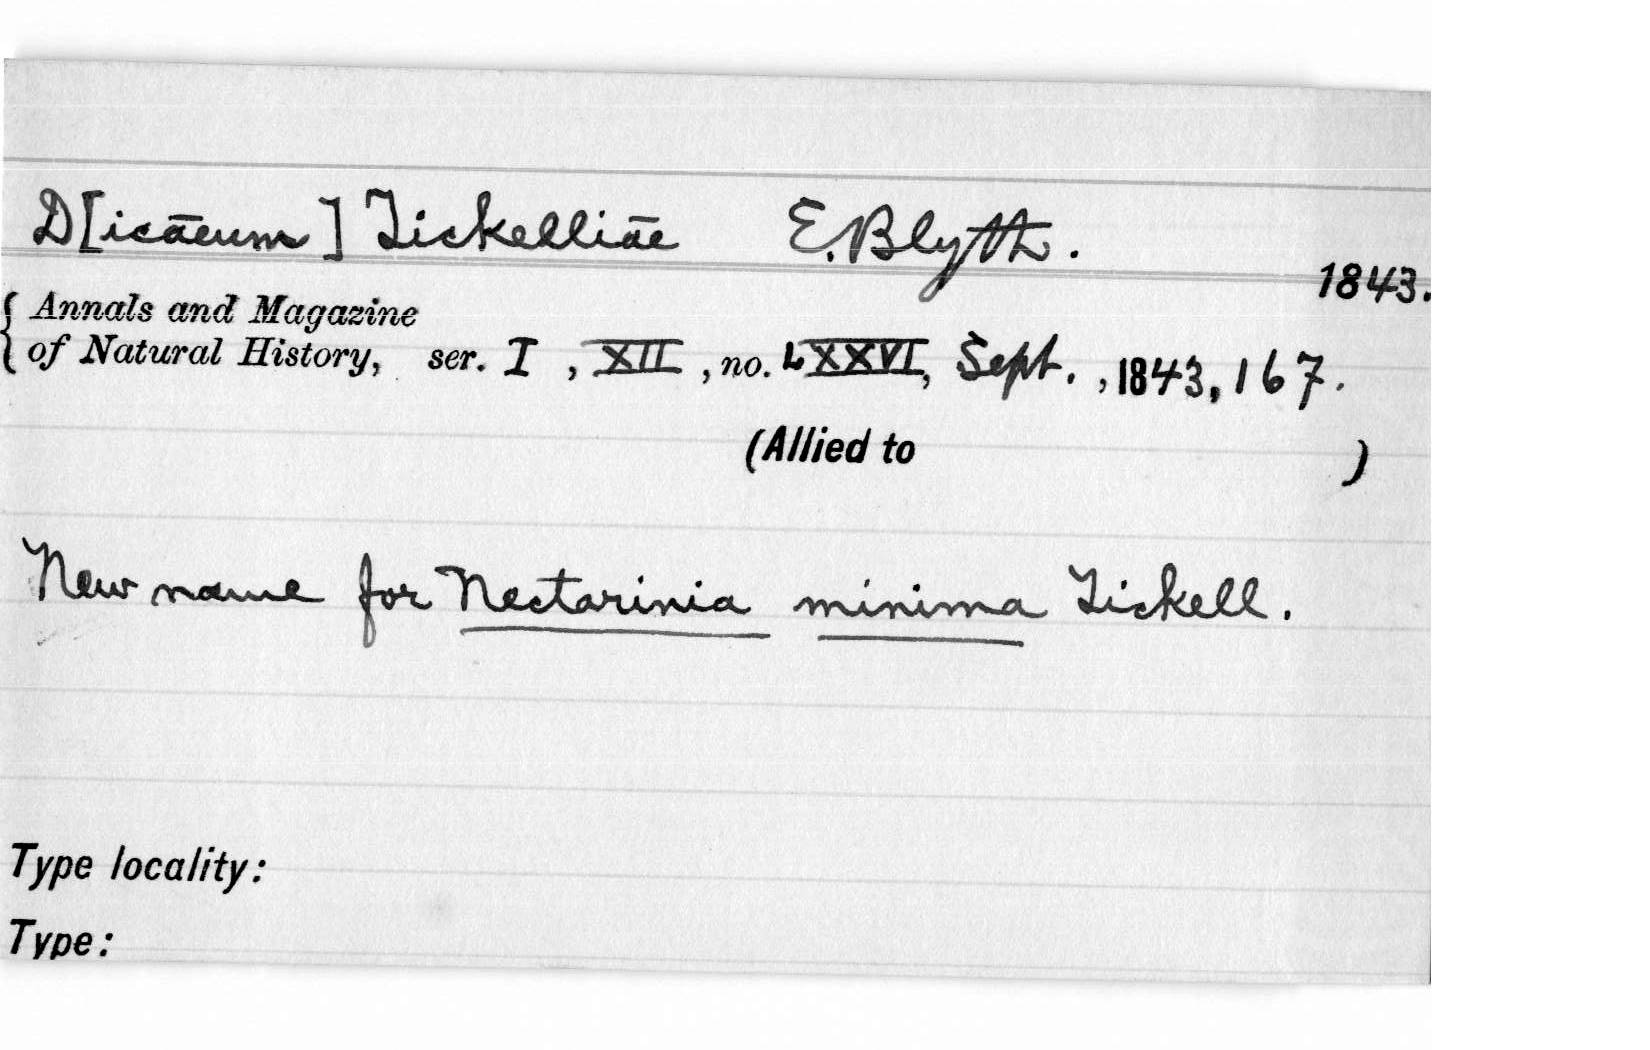 D[icāeum] Tickelliāe E. Blyth.
1843.
{ Annals and Magazine
of Natural History, ser. I, XII, no. LXXVI, Sept., 1843, 167.
(Allied to )
New name for Nectarinia minima Tickell.
Type locality:
Type: